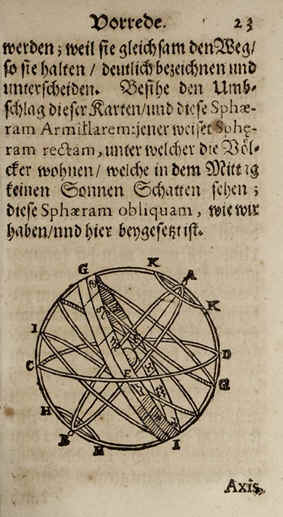 Vorrede. 23
werden; weil sie gleichsam den Weg/
so sie halten / deutlich bezeichnen und
unterscheiden. Besihe den Umb-
schlag dieser Karten/und diese Sphæ-
ram Armillarem: jener weiset Sphę-
ram rectam, unter welcher die Völ-
cker wohnen/ welche in dem Mittag
keinen Sonnen Schatten sehen;
diese Sphæram obliquam, wie wir
haben/und hier beygesetzt ist.
G K A
K
I
C F D
G
H
B M I
Axis